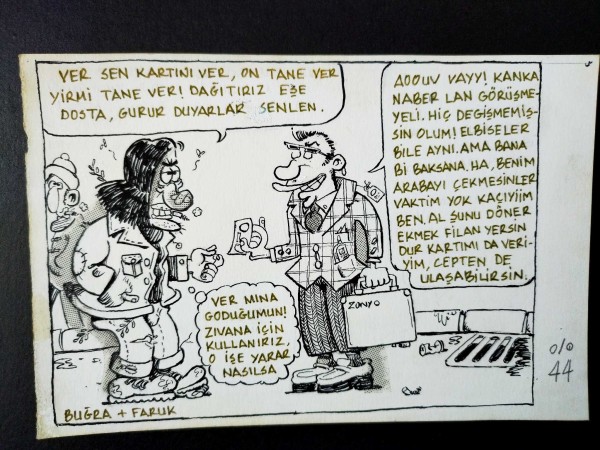 VER SEN KARTINI VER, ON TANE VER
YİRMİ TANE VER! DAĞITIRIZ EŞE
DOSTA, GURUR DUYARLAR SENLEN.
AOOUV VAYY! KANKA
NABER LAN GÖRÜŞME-
YELİ. HİÇ DEĞİŞMEMİŞ-
SİN OLUM! ELBİSELER
BİLE AYNI. AMA BANA
Bİ BAKSANA. HA, BENİM
ARABAYI ÇEKMESİNLER
VAKTİM YOK KAÇIYİİM
BEN. AL ŞUNU DÖNER
EKMEK FİLAN YERSİN
DUR KARTIMI DA VERİ-
YİM, CEPTEN DE
ULAŞABİLİRSİN.
VER MINA
GODUĞUMUN!
ZIVANA İÇİN
KULLANIRIZ.
O İŞE YARAR
NASILSA
ZONYO
BUĞRA + FARUK
0/0
44